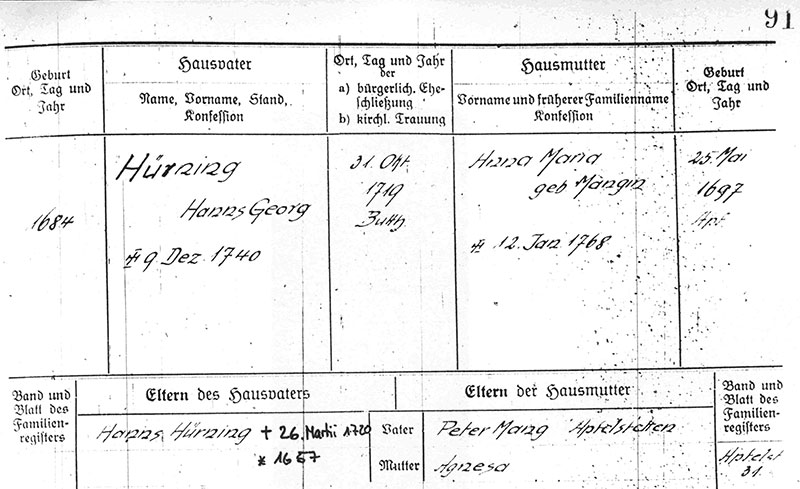 91
Geburt
Ort, Tag und
Jahr
Hausvater
Name, Vorname, Stand,
Konfession
Ort, Tag und Jahr
der
a) bürgerlich. Ehe-
schließung
b) kirchl. Trauung
Hausmutter
Vorname und früherer Familienname
Konfession
Geburt
Ort, Tag und
Jahr
1684
Hürning
Hanns Georg
9 Dez. 1740
31. Okt.
1719
Anna Maria
geb Mangin
12. Jan 1768
25. Mai
1697
Apf.
Band und
Blatt des
Familien-
registers
Eltern des Hausvaters
Eltern der Hausmutter
Band und
Blatt des
Familien-
registers
Hanns Hürning † 26. Martii 1720
* 1657
Vater
Peter Mang Apfelstetten
Mutter
Agnesa
Apfelst
31.